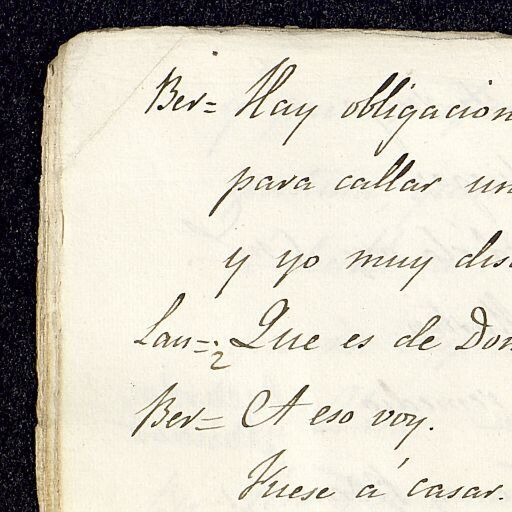 Ber= Hay obligacion
para callar un
y yo muy dis
Lau=¿Que es de Don
Ber= A eso voy.
Fuese á casar.